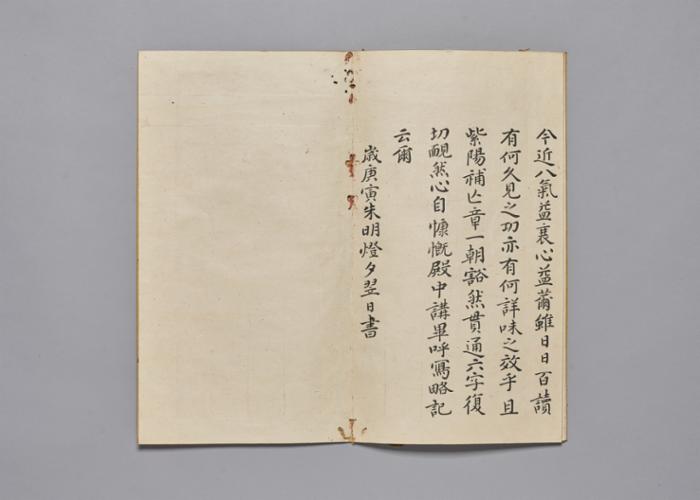 今近八氣益衰心益薾雖日日百讀
有何久見之功亦有何詳味之效乎且
紫陽補亡章一朝豁然貫通六字復
切靦然心自慷慨殿中講畢呼寫略記
云爾
歲庚寅朱明燈夕翌日書